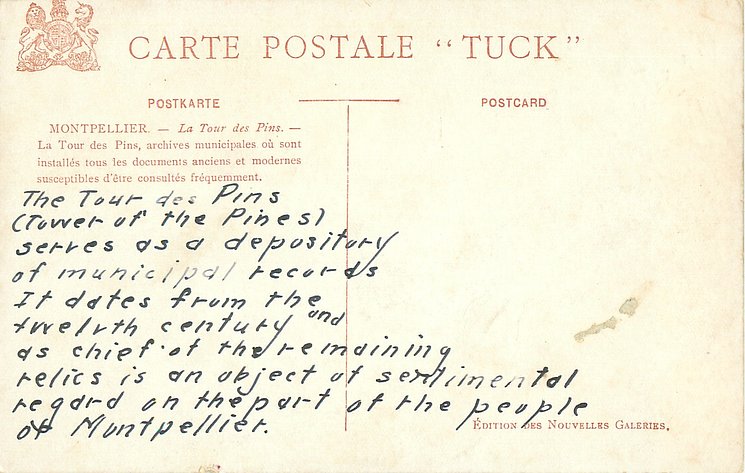 CARTE POSTALE “TUCK”
POSTKARTE
POSTCARD
MONTPELLIER. — La Tour des Pins. —
La Tour des Pins, archives municipales où sont
installés tous les documents anciens et modernes
susceptibles d'être consultés fréquemment.
The Tour des Pins
(Tower of the Pines)
serves as a depository
of municipal records
It dates from the
twelvth century and
as chief of the remaining
relics is an object of sentimental
regard on the part of the people
of Montpellier.
ÉDITION DES NOUVELLES GALERIES.